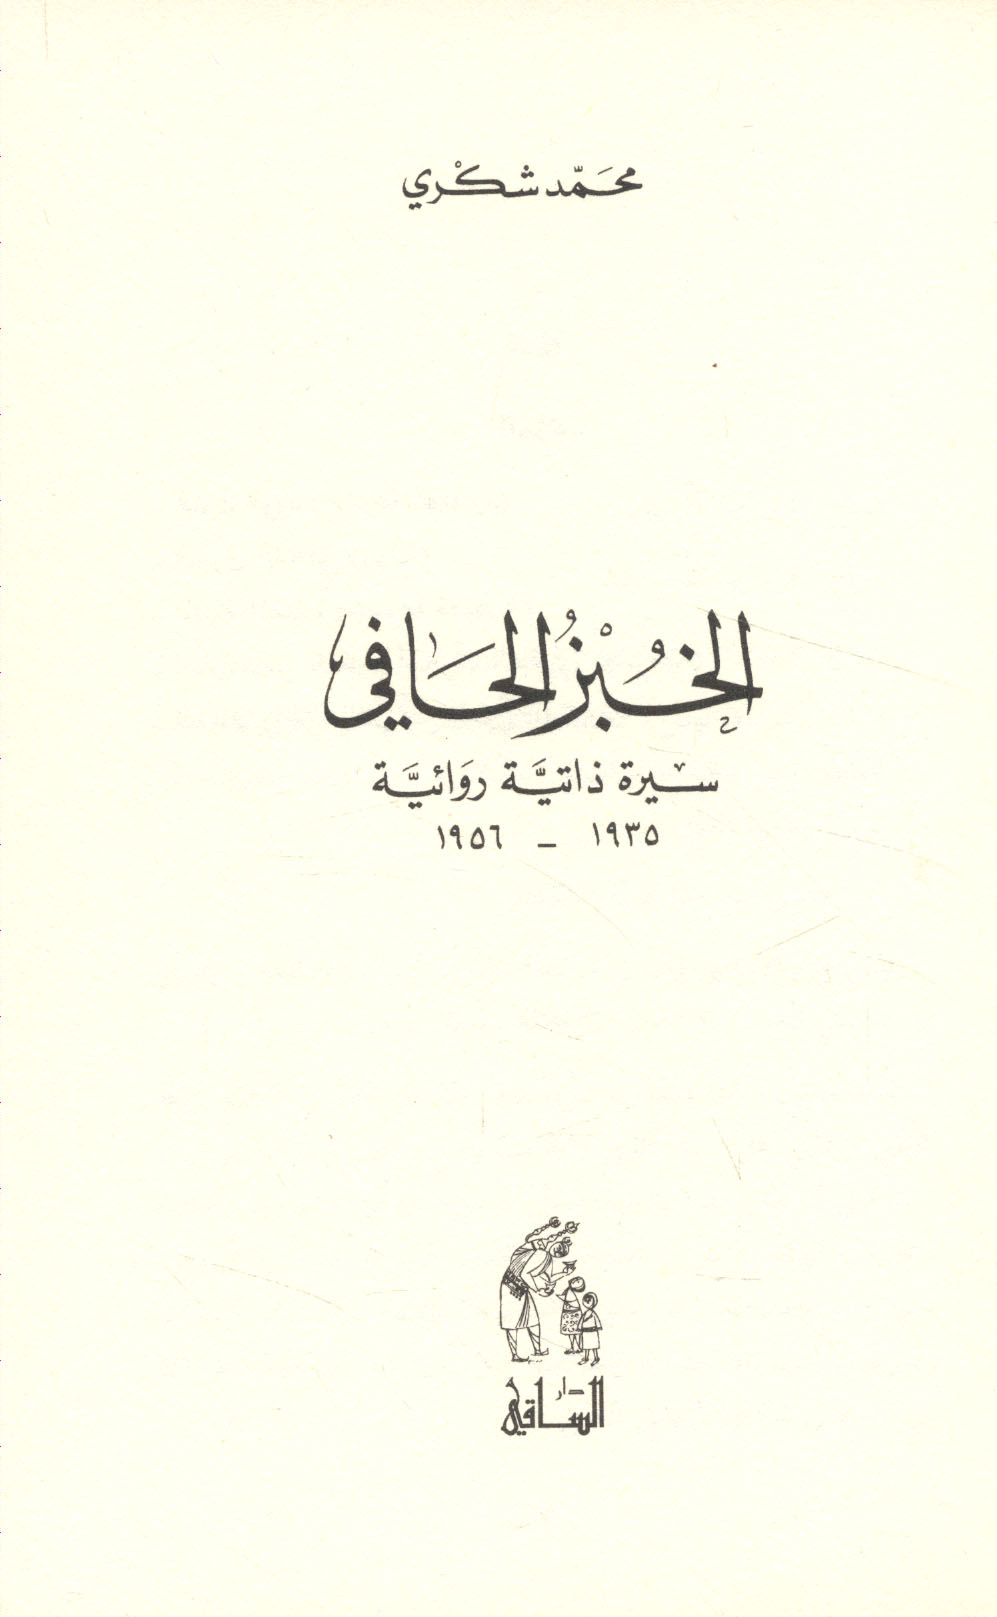 محَمّد شكْري
الخُبْزُ الحَافي
سيرة ذاتيَّة روَائيَّة
١٩٣٥ – ١٩٥٦
دار
السّاقي